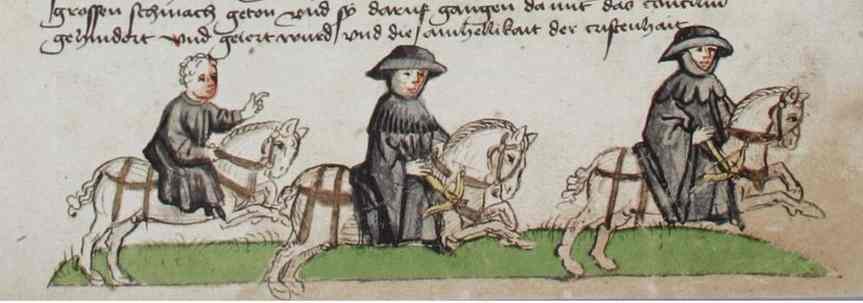 grossen schmach geton vnd sy daruf gangen da mit das concilium
gehindert vnd geiert wurd / vnd die / ainhellikait der cristenhait